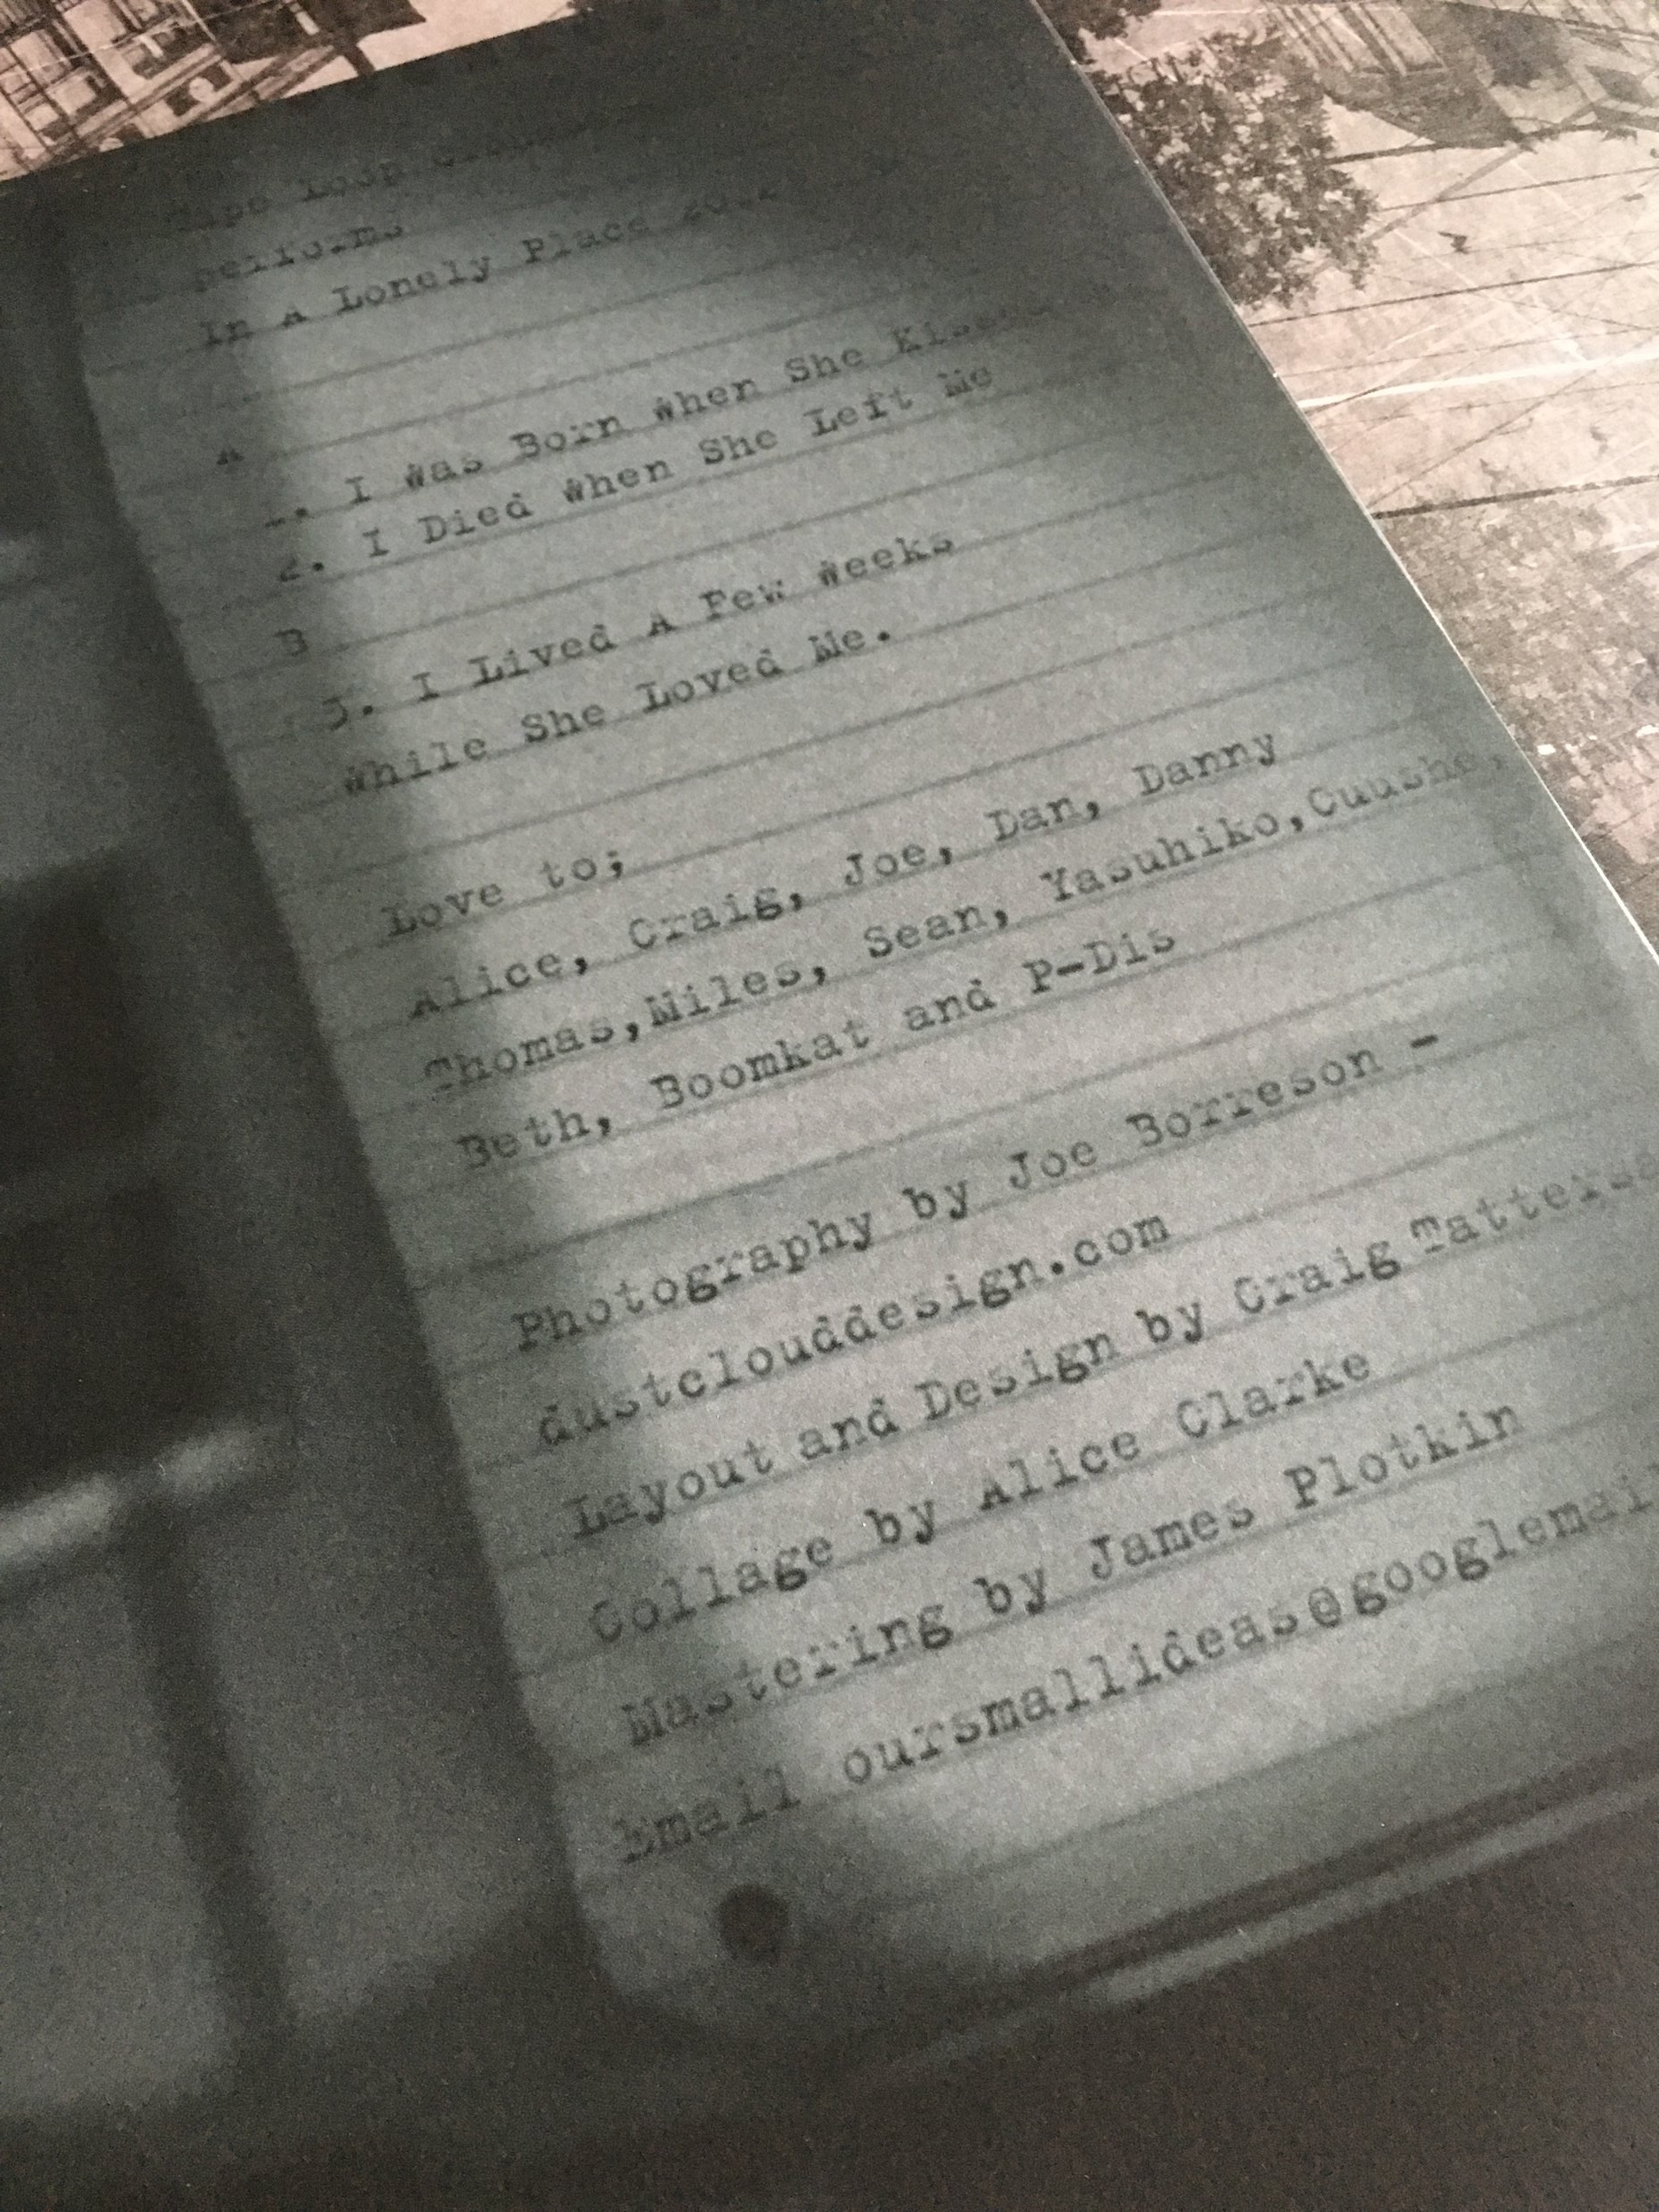 Tape Loop
performs
In A Lonely Place
A
1. I Was Born When She
2. I Died When She Left Me
B
3. I Lived A Few Weeks
While She Loved Me.
Love to;
Alice, Craig, Joe, Dan, Danny
Thomas,Miles, Sean, Yasuhiko,Cuushe,
Beth, Boomkat and P-Dis
Photography by Joe Borreson -
dustclouddesign.com
Layout and Design by Craig
Collage by Alice Clarke
Mastering by James Plotkin
Email oursmallideas@googlemail